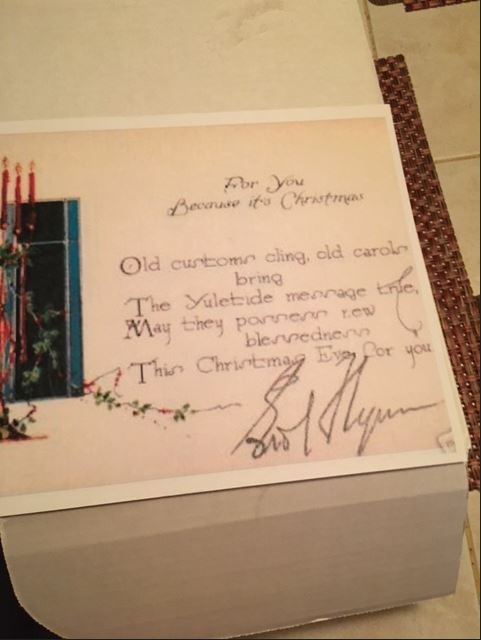 For You
Because it's Christmas
Old customs cling, old carols
bring
The Yuletide message true,
May they possess new
blessedness
This Christmas Eve for you
Errol Flynn